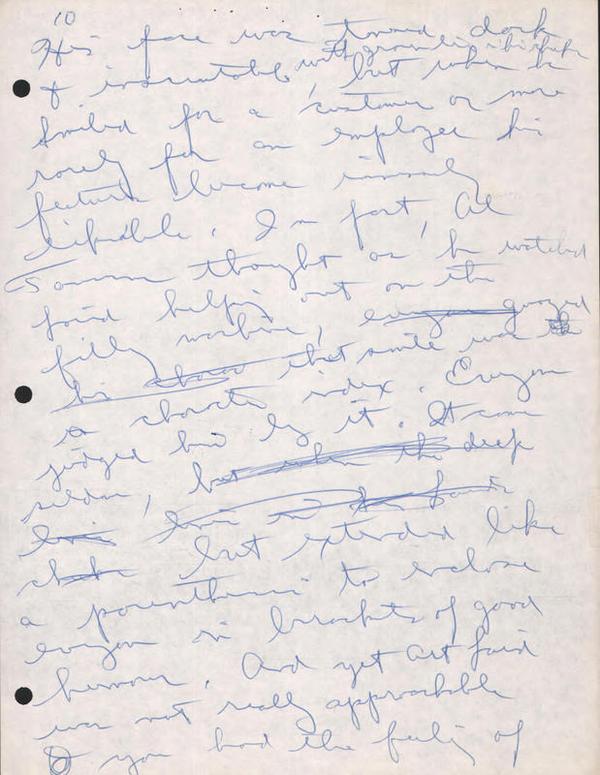 10
His face was toward dark
with granite
& inscrutable, but when he
smiled for a customer or more
rarely for an employee his
features became immensely
likeable. In fact, Al
thought as he watched
Faird helping out on the
filling machine, everyone guessed
his that smile was the
a character index. Everyone
judged him by it. It came
seldom, but when the deep
lines in
but extended like
a parenthesis to enclose
everyone in brackets of good
humour. And yet Art Faird
was not really approachable
& you had the feeling of